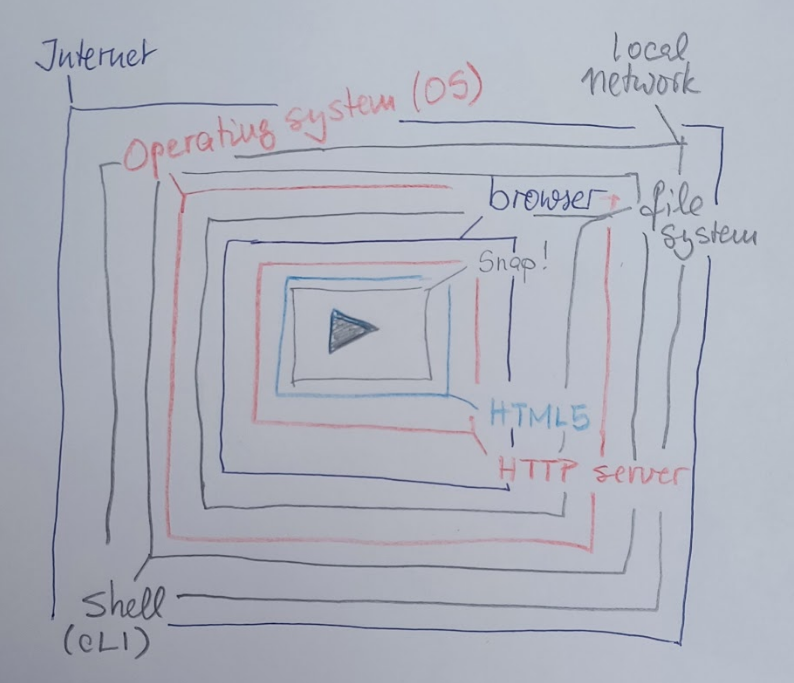 Internet
local
network
Operating system (OS)
browser
file
system
Snap!
HTML5
HTTP server
Shell
(CLI)